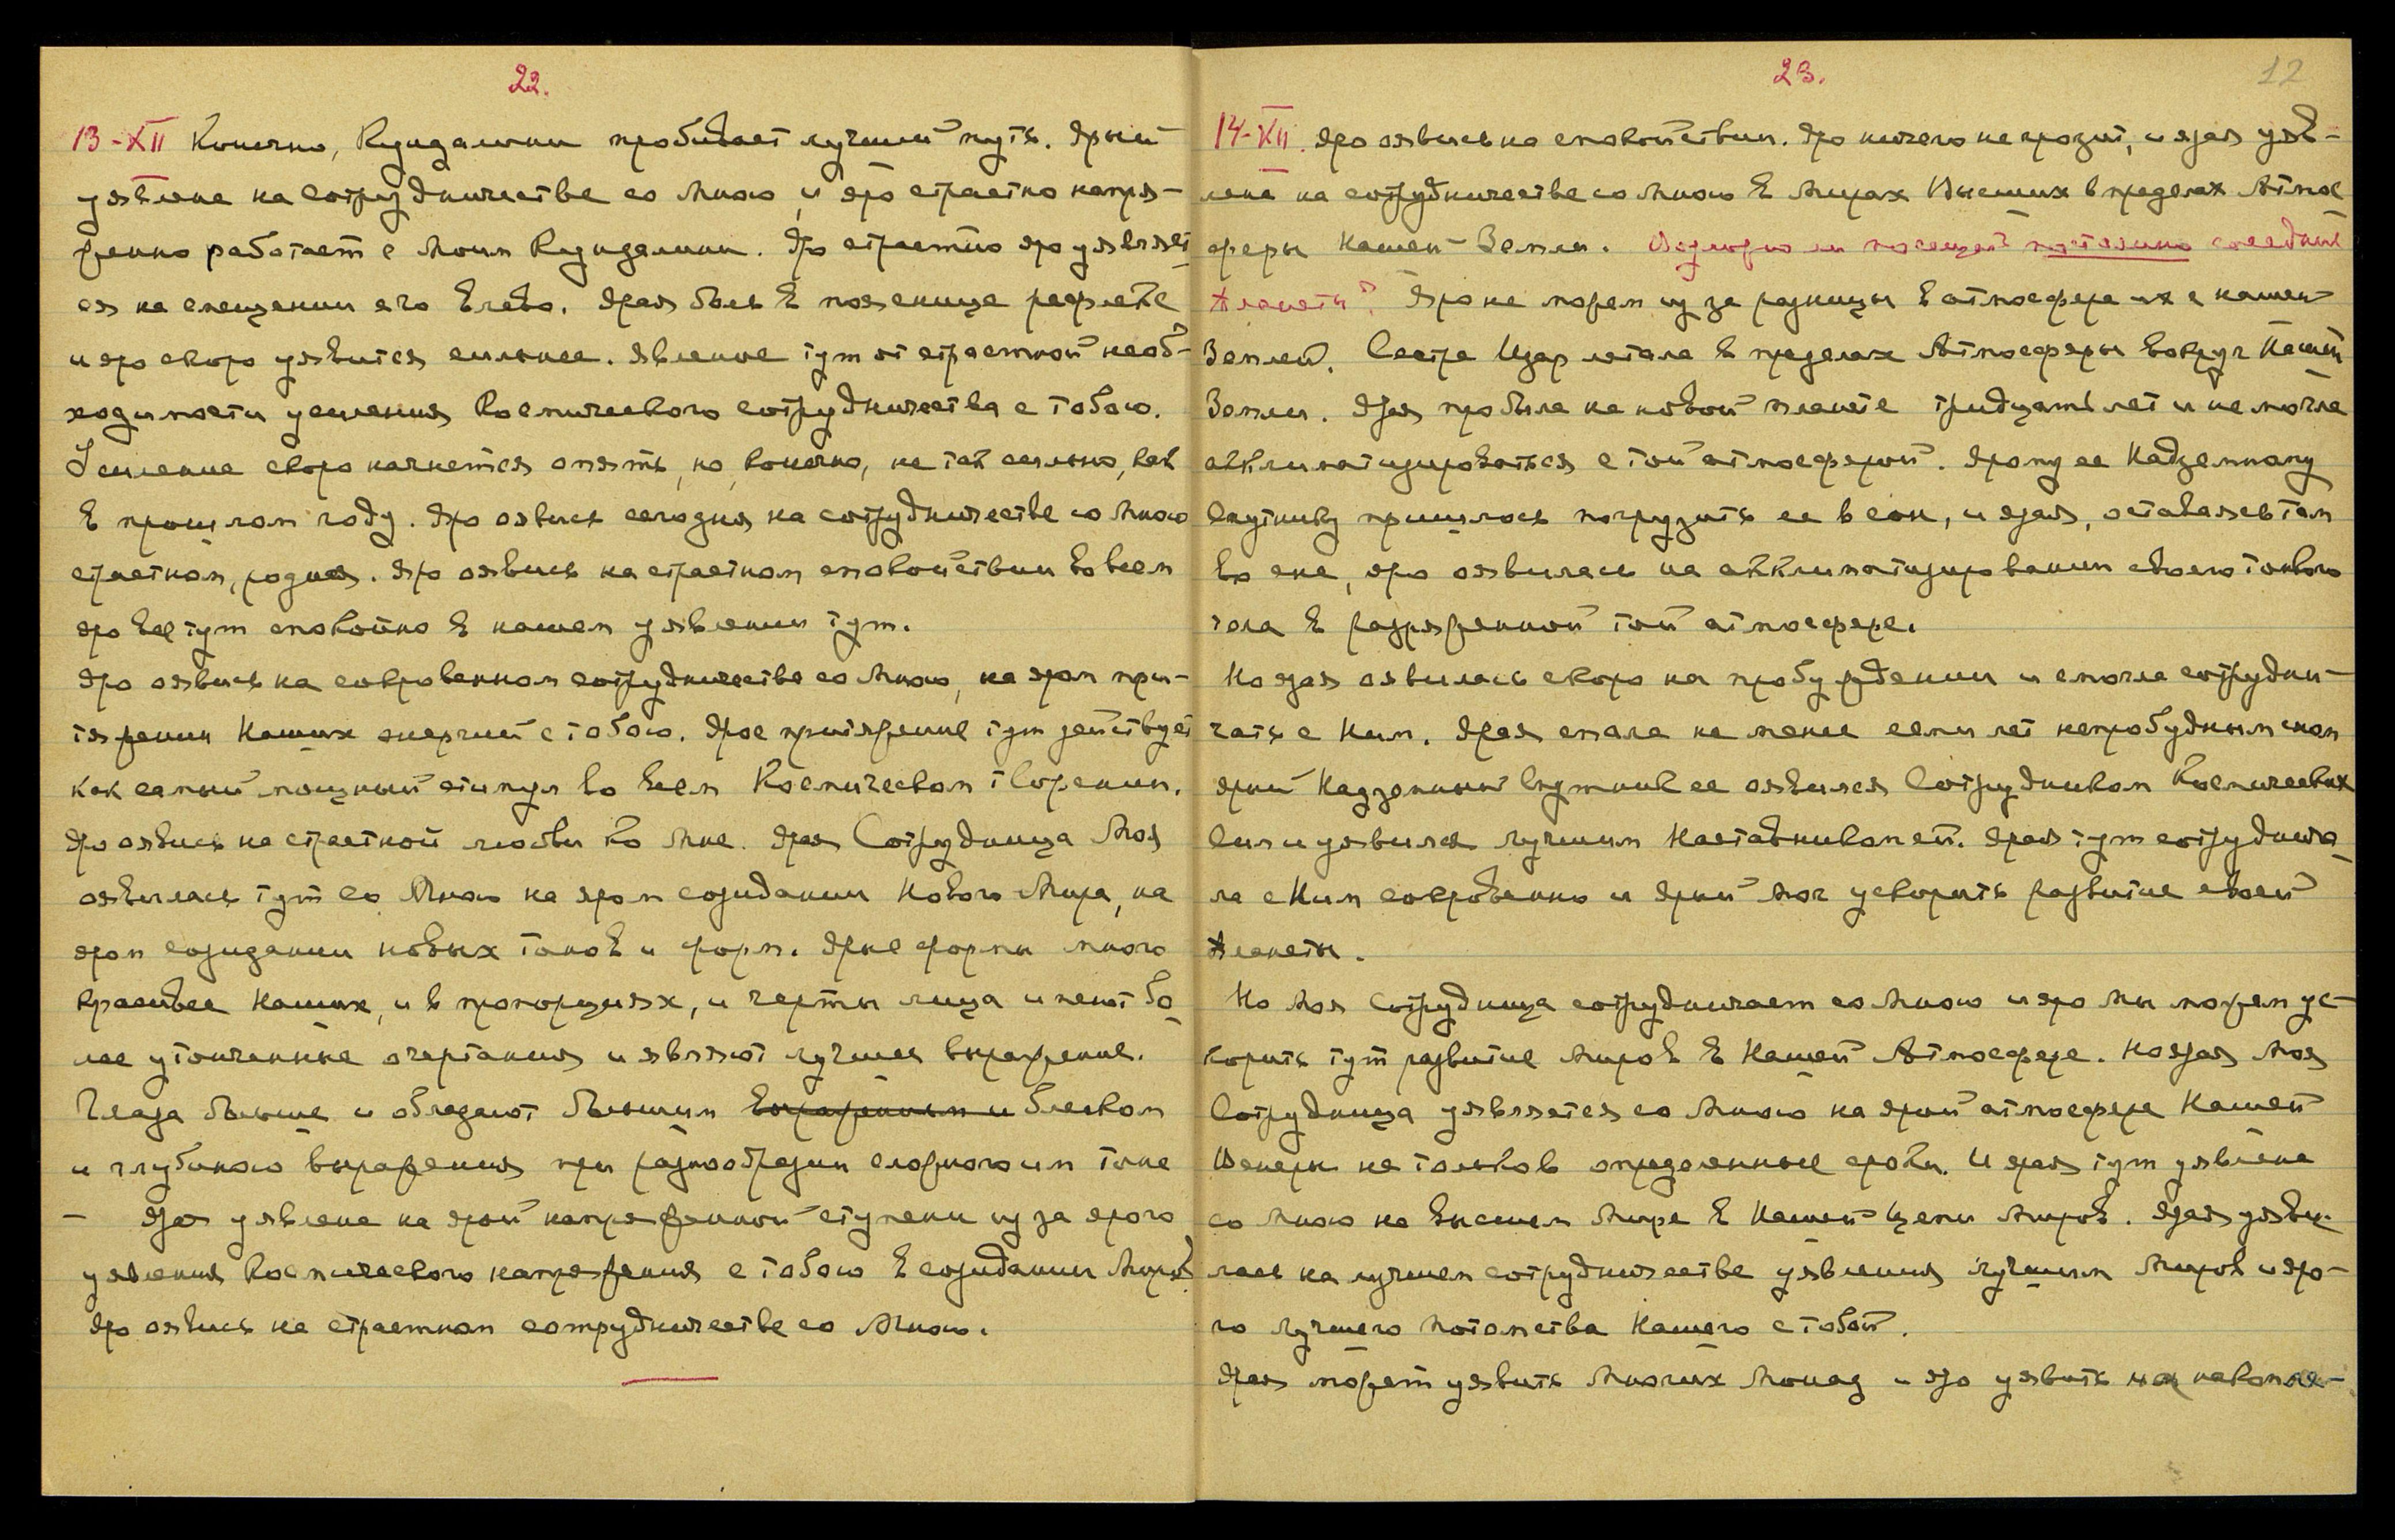 22.
13-XII Конечно, Кундалини пробивает лучший путь. Ярый
уявлена на сотрудничестве со Мною и яро страстно напря-
женно работает с Моим Кундалини. Яро страстно яро уявляет
ся на смещении его влево. Ярая боль в пояснице рефлекс
и яро скоро уявится сильнее. Явление тут от страстной необ-
ходимости усиления Космического сотрудничества с тобою.
Усиление скоро начнется опять, но, конечно, не так сильно, как
в прошлом году. Яро оявись сегодня на сотрудничестве со Мною
страстном, родная. Яро оявись на страстном спокойствии во всем
яро все тут спокойно в нашем уявлении тут.
Яро оявись на сокровенном сотрудничестве со Мною, на яром при-
тяжении Наших энергий с тобою. Ярое притяжение тут действует
как самый мощный стимул во всем Космическом творении.
Яро оявись на страстной любви ко Мне. Ярая Сотрудница Моя
оявилась тут со Мною на яром созидании Нового Мира, на
яром созидании новых тонов и форм. Ярые формы много
красивее Наших, и в пропорциях, и черты лица имеют бо
лее утонченные очертания и являют лучшее выражение.
Глаза больше и обладают большим выражением и блеском
и глубиною выражения при разнообразии сложного им тона
– Ярая уявлена на ярой напряженной ступени из за ярого
уявления Космического напряжения с тобою в созидании Миров
Яро оявись на страстном сотрудничестве со Мною.
23.
12
14-XII. Яро оявись на спокойствии. Яро ничего не грозит, и ярая уяв-
лена на сотрудничестве со Мною в Мирах Высших в пределах Атмос
феры Нашей Земли. Возможно ли посещать поэтапно соседние
планеты? Яро не можем из за разницы в атмосфере их с нашей
Землей. Сестра Изар летала в пределах Атмосферы вокруг Нашей
Земли. Ярая пробыла на новой планете тридцать лет и не могла
акклиматизироваться с той атмосферой. Ярому ее Надземному
Спутнику пришлось погрузить ее в сон, и ярая, оставаясь там
во сне, яро оявилась на акклиматизировании своего тонкого
тела в разряженной той атмосфере.
Но ярая оявилась скоро на пробуждении и смогла сотрудни-
чать с Ним. Ярая спала не менее семи лет непробудным сном
ярый Надземный Спутник ее оявился Сотрудником Космических
Сил и уявился лучшим Наставником ей. Ярая тут сотруднича
ла с Ним сокровенно и Ярый мог ускорить развитие своей
Планеты.
Но Моя Сотрудница сотрудничает со Мною и яро Мы можем ус-
корить тут развитие Миров в Нашей Атмосфере. Но ярая Моя
Сотрудница уявляется со Мною на ярой атмосфере Нашей
Венеры на только в определенные сроки. И ярая тут уявлена
со Мною на высшем Мире в Нашей Цепи Миров. Ярая уяви-
лась на лучшем сотрудничестве уявления лучшим Миров и яро-
го лучшего потомства Нашего с тобой.
Ярая может уявить Многих Монад и яро уявить накопле-